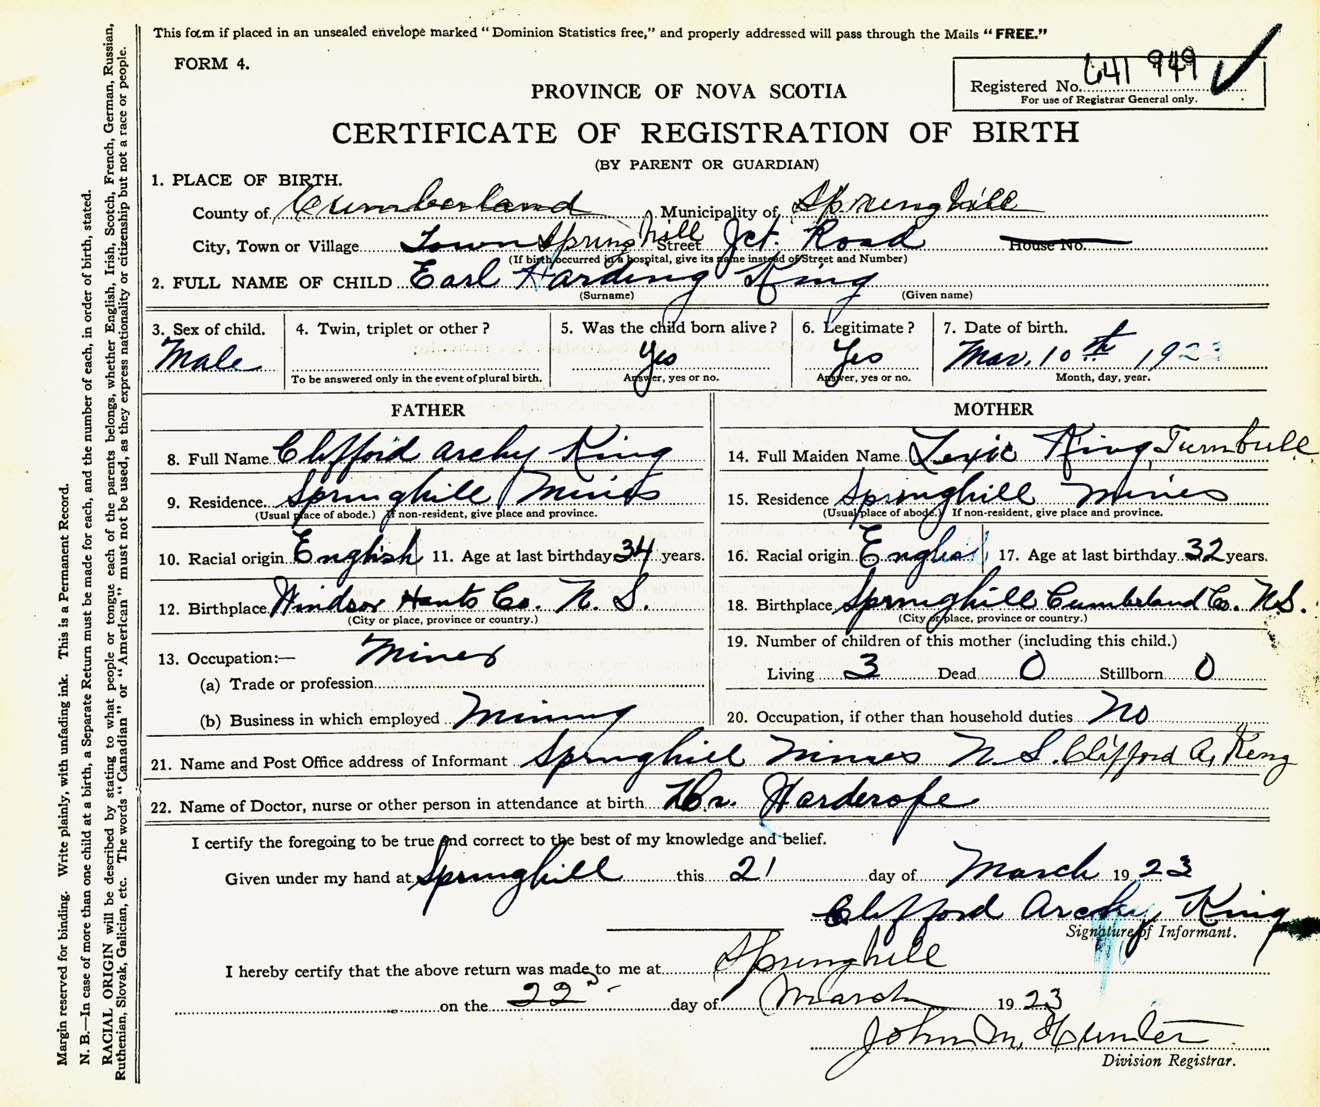 This form if placed in an unsealed envelope marked "Dominion Statistics free," and properly addressed will pass through the Mails "FREE."
FORM 4.
Registered No. 641 949
For use of Registrar General only.
PROVINCE OF NOVA SCOTIA
CERTIFICATE OF REGISTRATION OF BIRTH
(BY PARENT OR GUARDIAN)
1. PLACE OF BIRTH.
County of Cumberland Municipality of Springhill
City, Town or Village Town Springhill Street Jct. Road House No.
(If birth occurred in a hospital, give its name instead of Street and Number)
2. FULL NAME OF CHILD Earl Harding King
(Surname) (Given name)
3. Sex of child. Male
4. Twin, triplet or other?
To be answered only in the event of plural birth.
5. Was the child born alive? Yes
Answer, yes or no.
6. Legitimate? Yes
Answer, yes or no.
7. Date of birth. Mar. 10th 1923
Month, day, year.
FATHER
8. Full Name Clifford Archy King
9. Residence Springhill Mines
(Usual place of abode.) If non-resident, give place and province.
10. Racial origin English 11. Age at last birthday 34 years.
12. Birthplace Windsor Hants Co. N. S.
(City or place, province or country.)
13. Occupation:— Miner
(a) Trade or profession
(b) Business in which employed Mining
MOTHER
14. Full Maiden Name Lexie King Turnbull
15. Residence Springhill Mines
(Usual place of abode.) If non-resident, give place and province.
16. Racial origin English 17. Age at last birthday 32 years.
18. Birthplace Springhill Cumberland Co. N.S.
(City or place, province or country.)
19. Number of children of this mother (including this child.)
Living 3 Dead 0 Stillborn 0
20. Occupation, if other than household duties No
21. Name and Post Office address of Informant Springhill Mines N. S. Clifford A. King
22. Name of Doctor, nurse or other person in attendance at birth Dr.
I certify the foregoing to be true and correct to the best of my knowledge and belief.
Given under my hand at Springhill this 21 day of March 1923
Clifford Archy King
Signature of Informant.
I hereby certify that the above return was made to me at Springhill
on the 22 day of March 1923
John M. Hunter
Division Registrar.
Margin reserved for binding. Write plainly, with unfading ink. This is a Permanent Record.
N. B.—In case of more than one child at a birth, a Separate Return must be made for each, and the number of each, in order of birth, stated.
RACIAL ORIGIN will be described by stating to what people or tongue each of the parents belongs, whether English, Irish, Scotch, French, German, Russian,
Ruthenian, Slovak, Galician, etc. The words "Canadian" or "American" must not be used, as they express nationality or citizenship but not a race or people.